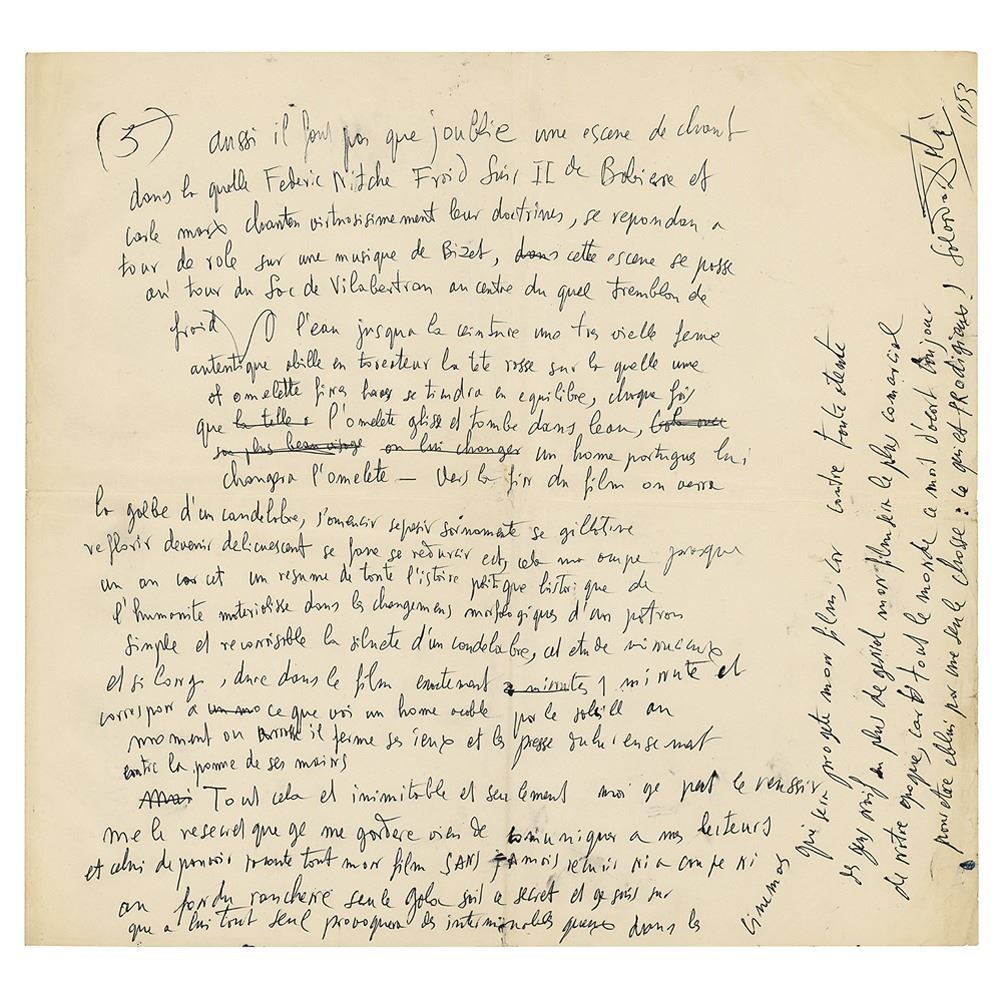 (5) aussi il fout pas que joublie une escene de chant
dans la quelle Federic Nitche Froid Luis II de Babierre et
carle marx chanten virtuosisimement leur doctrines, se repondan a
tour de role sur une musique de Bizet, dans cette escene se posse
au tour du Lac de Vilabertran au centre du quel tremblon de
froid
l'eau jusqua la ceinture une tres vielle feme
autentique abille en torerateur la tete rasse sur la quelle une
omelette fines erbes se tiendra en equilibre, chaque fois
que la telle l'omelete glise et tombe dans leau,
son plus beau on lui changer un home portugues lui
changera l'omelete — Vers la fin du film on verra
la galbe d'un candelabre, se gillotine
reflorir devenir delicuescent se fane se redurcir etc, cela ma ocupe presque
un an car cet un resume de toute l'istoire politique historique de
l'humanite materialisse dans les changemens morfologiques d'un patron
simple et reconisible la siluete d'un candelabre, cet etude minucieux
et si long, dure dans le film exactement 2 minutes 1 minute et
correspon a un mo ce que voi un home par le soleill au
moment ou il ferme ses ieux et les presse
contre la paume de ses mains
Mai Tout cela et inimitable et seulement moi ge peut le reussir
me le secret que ge me gardere vien de comuniquer a mes lecteurs
et celui de pouvoir tout mon film SANS jamais ni a coupe ni
au fondu ranchené seule Gala sait ce secret et ge suis sur
que a lui tout seul provoquera des interminables queues dans les
cinemas
qui sera progete mon film, car contre toute atente
des gens en plus de genial mon film sera le plus comercial
de notre epoque, car tout le monde a moid d'acort toujour
pour etre eblui par une seule chosse: ce qui et PRodigieux!
Salvador Dalí
1953